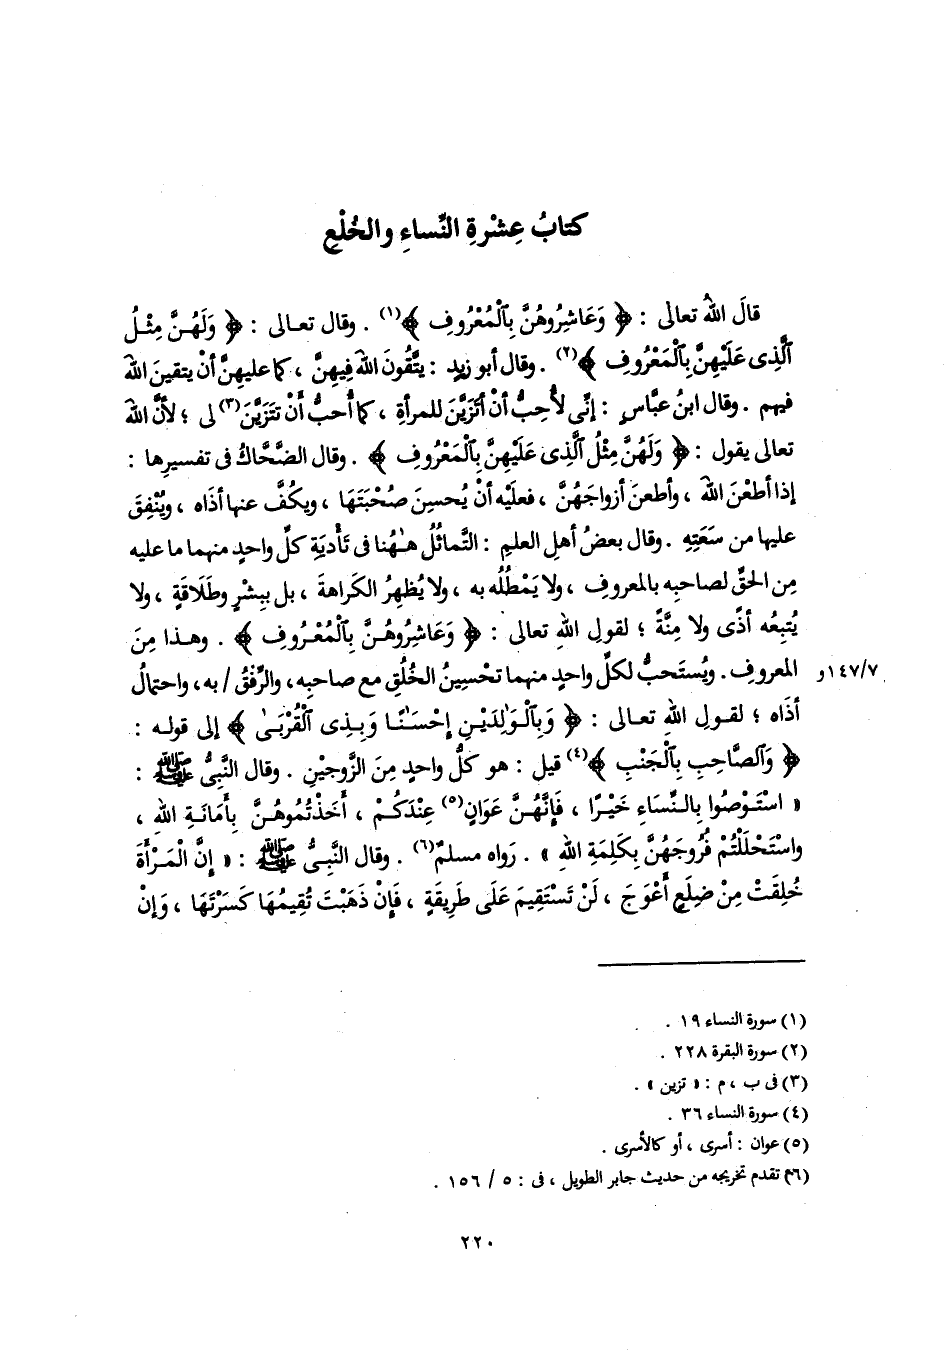 كتابُ عِشْرةِ النِّساءِ والخُلْعِ
قالَ اللهُ تعالى : ﴿ وَعَاشِرُوهُنَّ بِٱلْمَعْرُوفِ ﴾(١) . وقال تعالى : ﴿ وَلَهُنَّ مِثْلُ
ٱلَّذِى عَلَيْهِنَّ بِٱلْمَعْرُوفِ ﴾(٢) . وقال أبو زيدٍ : يتَّقُونَ اللهَ فِيهِنَّ ، كما عليهنَّ أنْ يتقينَ اللهَ
فيهم . وقال ابنُ عبَّاسٍ : إنِّى لأُحِبُّ أنْ أتَزَيَّنَ للمرأةِ ، كما أُحبُّ أَنْ تتَزَيَّنَ(٣) لى ؛ لأنَّ اللهَ
تعالى يقول : ﴿ وَلَهُنَّ مِثْلُ ٱلَّذِى عَلَيْهِنَّ بِٱلْمَعْرُوفِ ﴾ . وقال الضَّحَّاكُ فى تفسيرِها :
إذا أطعْنَ اللهَ ، وأطعنَ أزواجَهُنَّ ، فعليْه أنْ يُحسِنَ صُحْبَتَهَا ، ويكُفَّ عنها أذَاه ، ويُنْفِقَ
عليها من سَعَتِهِ . وقال بعضُ أهلِ العلمِ : التَّماثُلُ هٰهُنا فى تَأْدِيَةِ كلِّ واحدٍ منهما ما عليه
مِن الحقِّ لصاحبِه بالمعروفِ ، ولا يَمْطُلُه به ، ولا يُظهِرُ الكَراهةَ ، بل ببِشْرٍ وطَلَاقَةٍ ، ولا
يُتبِعُه أذًى ولا مِنَّةً ؛ لقولِ اللهِ تعالى : ﴿ وَعَاشِرُوهُنَّ بِٱلْمَعْرُوفِ ﴾ . وهذا مِنَ
المعروفِ . ويُستَحبُّ لكلِّ واحدٍ منهما تحْسِينُ الخُلُقِ مع صاحبِه، والرِّفْقُ / به، واحتمالُ ١٤٧/٧و
أذَاه ؛ لقولِ اللهِ تعالى : ﴿ وَبِٱلْوَٰلِدَيْنِ إِحْسَٰنًا وَبِذِى ٱلْقُرْبَىٰ ﴾ إلى قوله :
﴿ وَٱلصَّاحِبِ بِٱلْجَنۢبِ ﴾(٤) قيل : هو كلُّ واحدٍ مِنَ الزَّوجيْنِ . وقال النَّبىُّ ﷺ :
« اسْتَوْصُوا بِالنِّسَاءِ خَيْرًا ، فَإِنَّهُنَّ عَوَانٍ(٥) عِنْدَكُمْ ، أَخَذْتُمُوهُنَّ بِأَمَانَةِ اللهِ ،
واسْتَحْلَلْتُمْ فُرُوجَهُنَّ بِكَلِمَةِ اللهِ » . رَواه مسلمٌ(٦) . وقال النَّبىُّ ﷺ : « إِنَّ الْمَرْأَةَ
خُلِقَتْ مِنْ ضِلَعٍ أَعْوَجَ ، لَنْ تَسْتَقِيمَ عَلَى طَرِيقَةٍ ، فَإِنْ ذَهَبْتَ تُقِيمُهَا كَسَرْتَهَا ، وَإِنْ
(١) سورة النساء ١٩ .
(٢) سورة البقرة ٢٢٨ .
(٣) فى ب ، م : « تزين » .
(٤) سورة النساء ٣٦ .
(٥) عوان : أسرى ، أو كالأسرى .
(٦) تقدم تخريجه من حديث جابر الطويل ، فى : ٥ / ١٥٦ .
٢٢٠